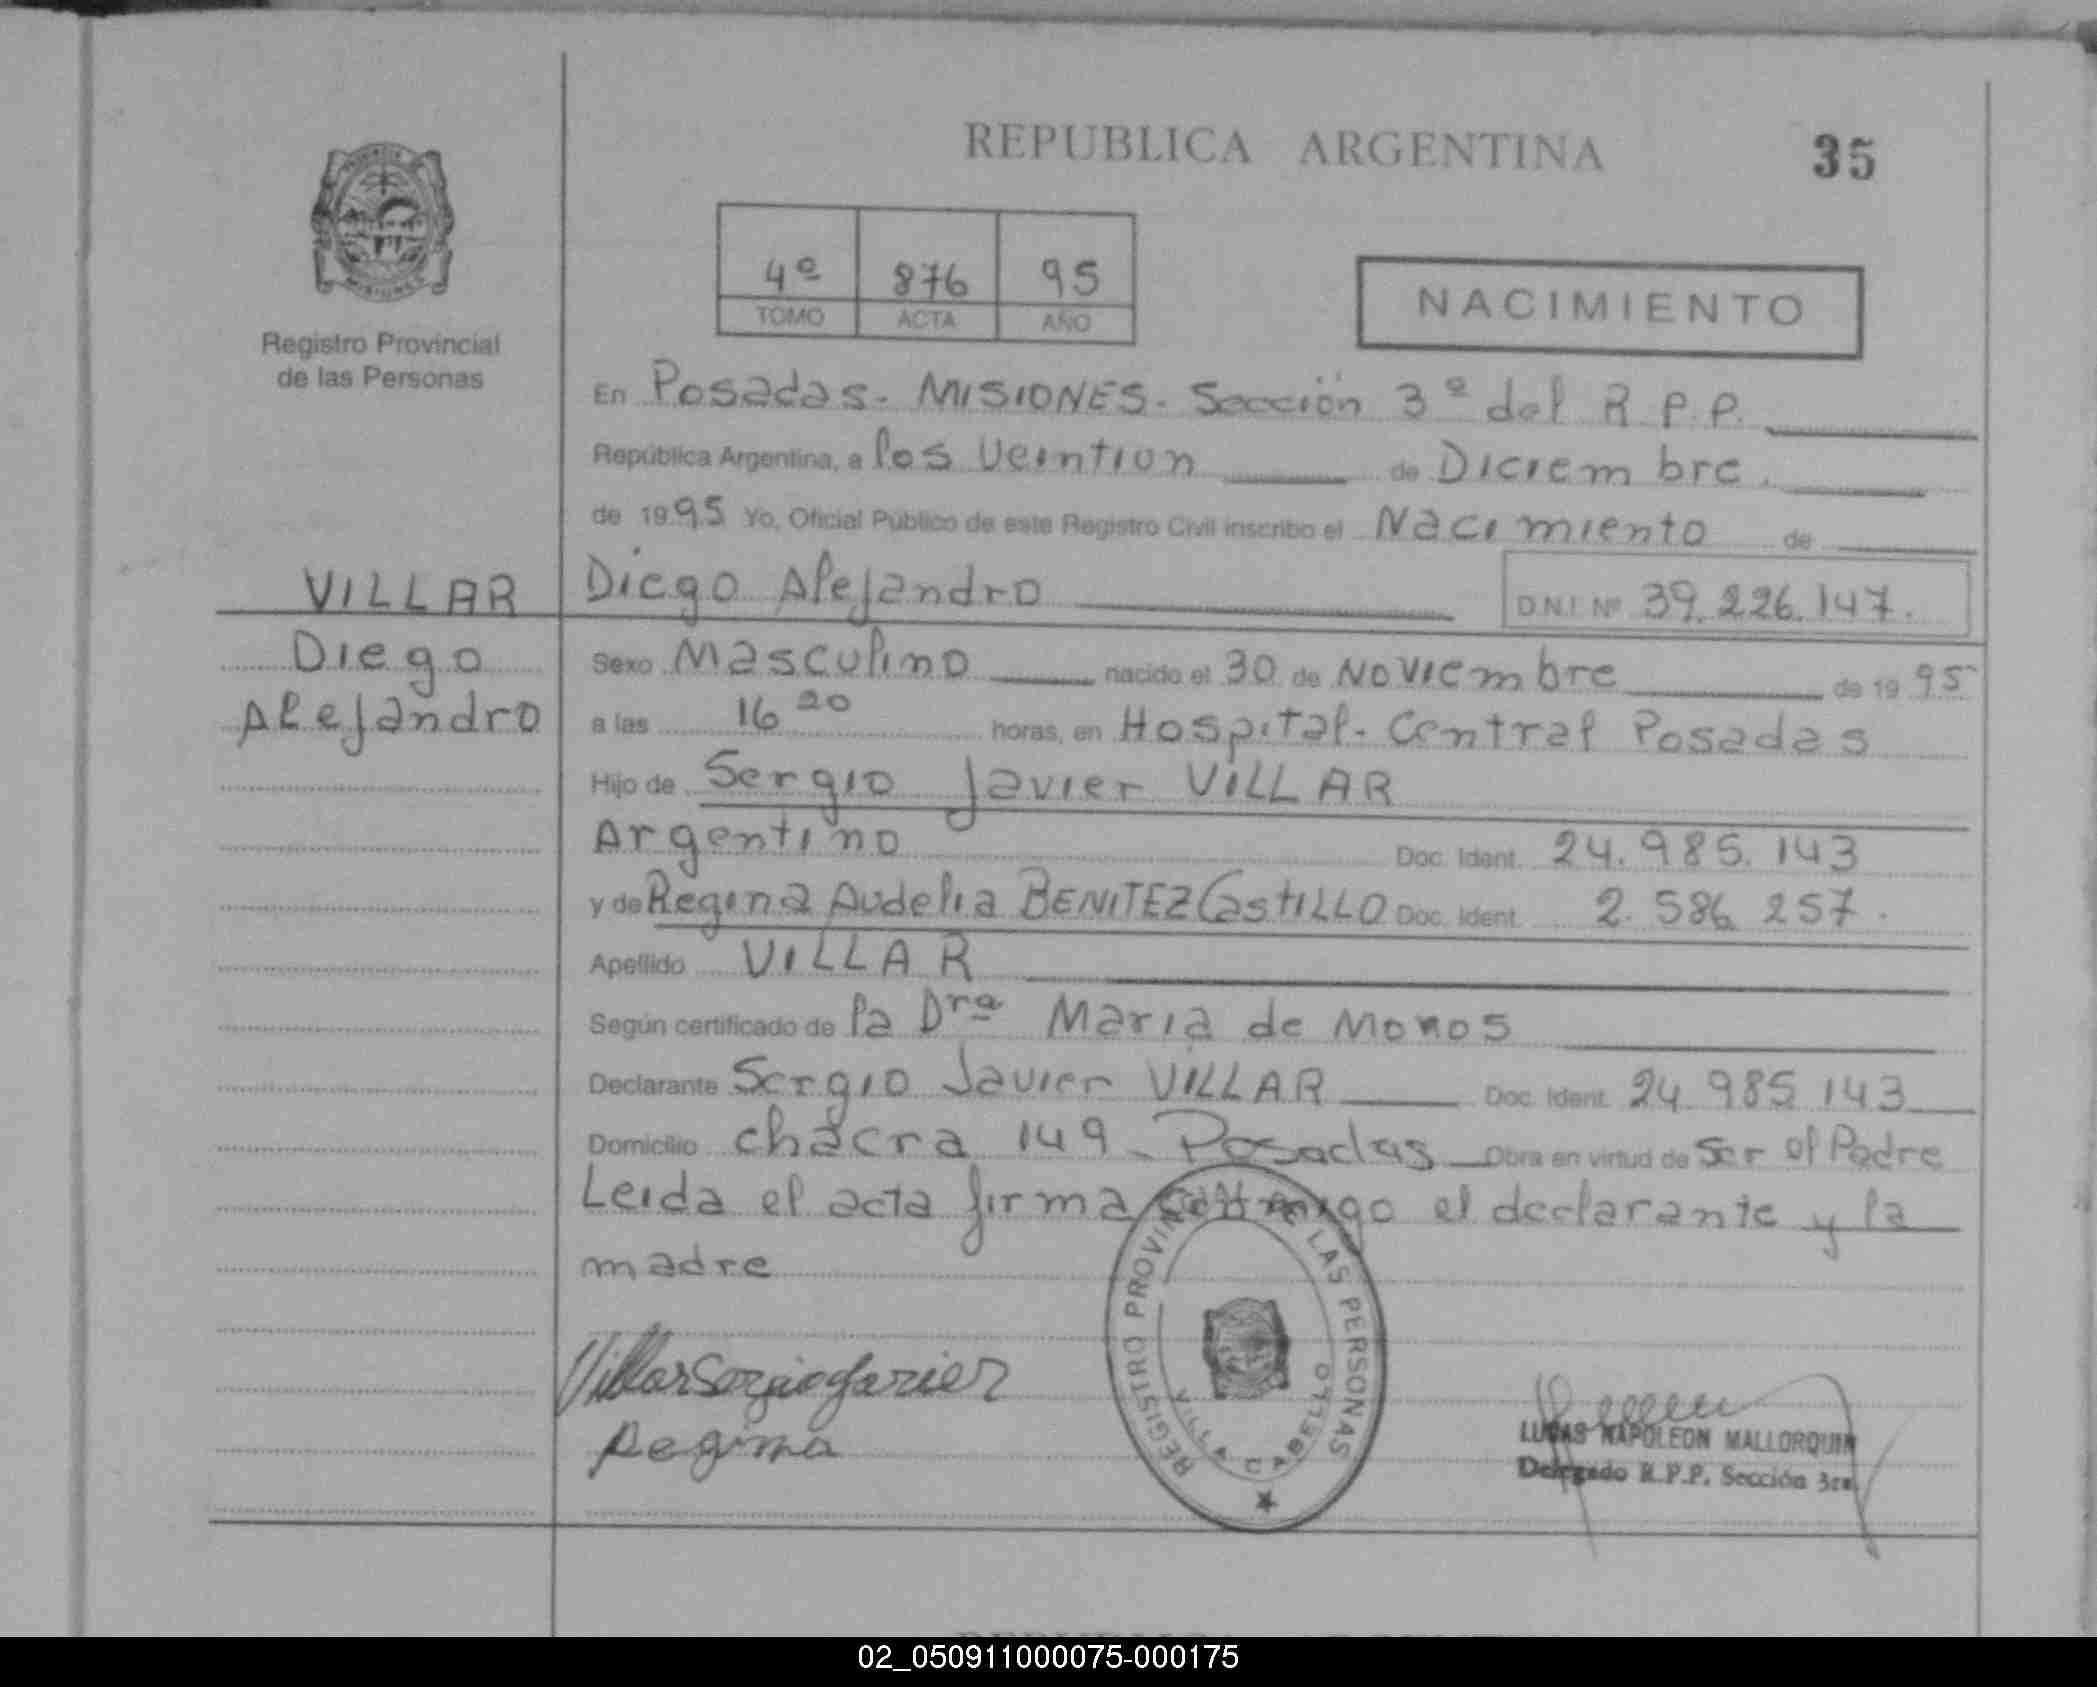 REPUBLICA ARGENTINA 35
4º 876 95
TOMO ACTA AÑO
NACIMIENTO
Registro Provincial
de las Personas
En Posadas. MISIONES. Sección 3º del R.P.P.
República Argentina, a los Veintiun de Diciembre.
de 1995 Yo, Oficial Público de este Registro Civil inscribo el Nacimiento de
VILLAR Diego Alejandro D.N.I. Nº 39.226.147.
Diego Sexo Masculino nacido el 30 de Noviembre de 1995
Alejandro a las 16 20 horas, en Hospital. Central Posadas
Hijo de Sergio Javier VILLAR
Argentino Doc. Ident. 24.985.143
y de Regina Audelia BENITEZ CastILLO Doc. Ident. 2.586 257.
Apellido VILLAR
Según certificado de la Dra Maria de
Declarante Sergio Javier VILLAR Doc. Ident. 24 985 143
Domicilio chacra 149 - Posadas Obra en virtud de Ser el Padre
Leida el acta firma conmigo el declarante y la
madre
Villar Sergio Javier
Regina
REGISTRO PROVIN LAS PERSONAS
VILLA CABELLO
LUCAS NAPOLEON MALLORQUIN
Delegado R.P.P. Sección 3ra
02_050911000075-000175